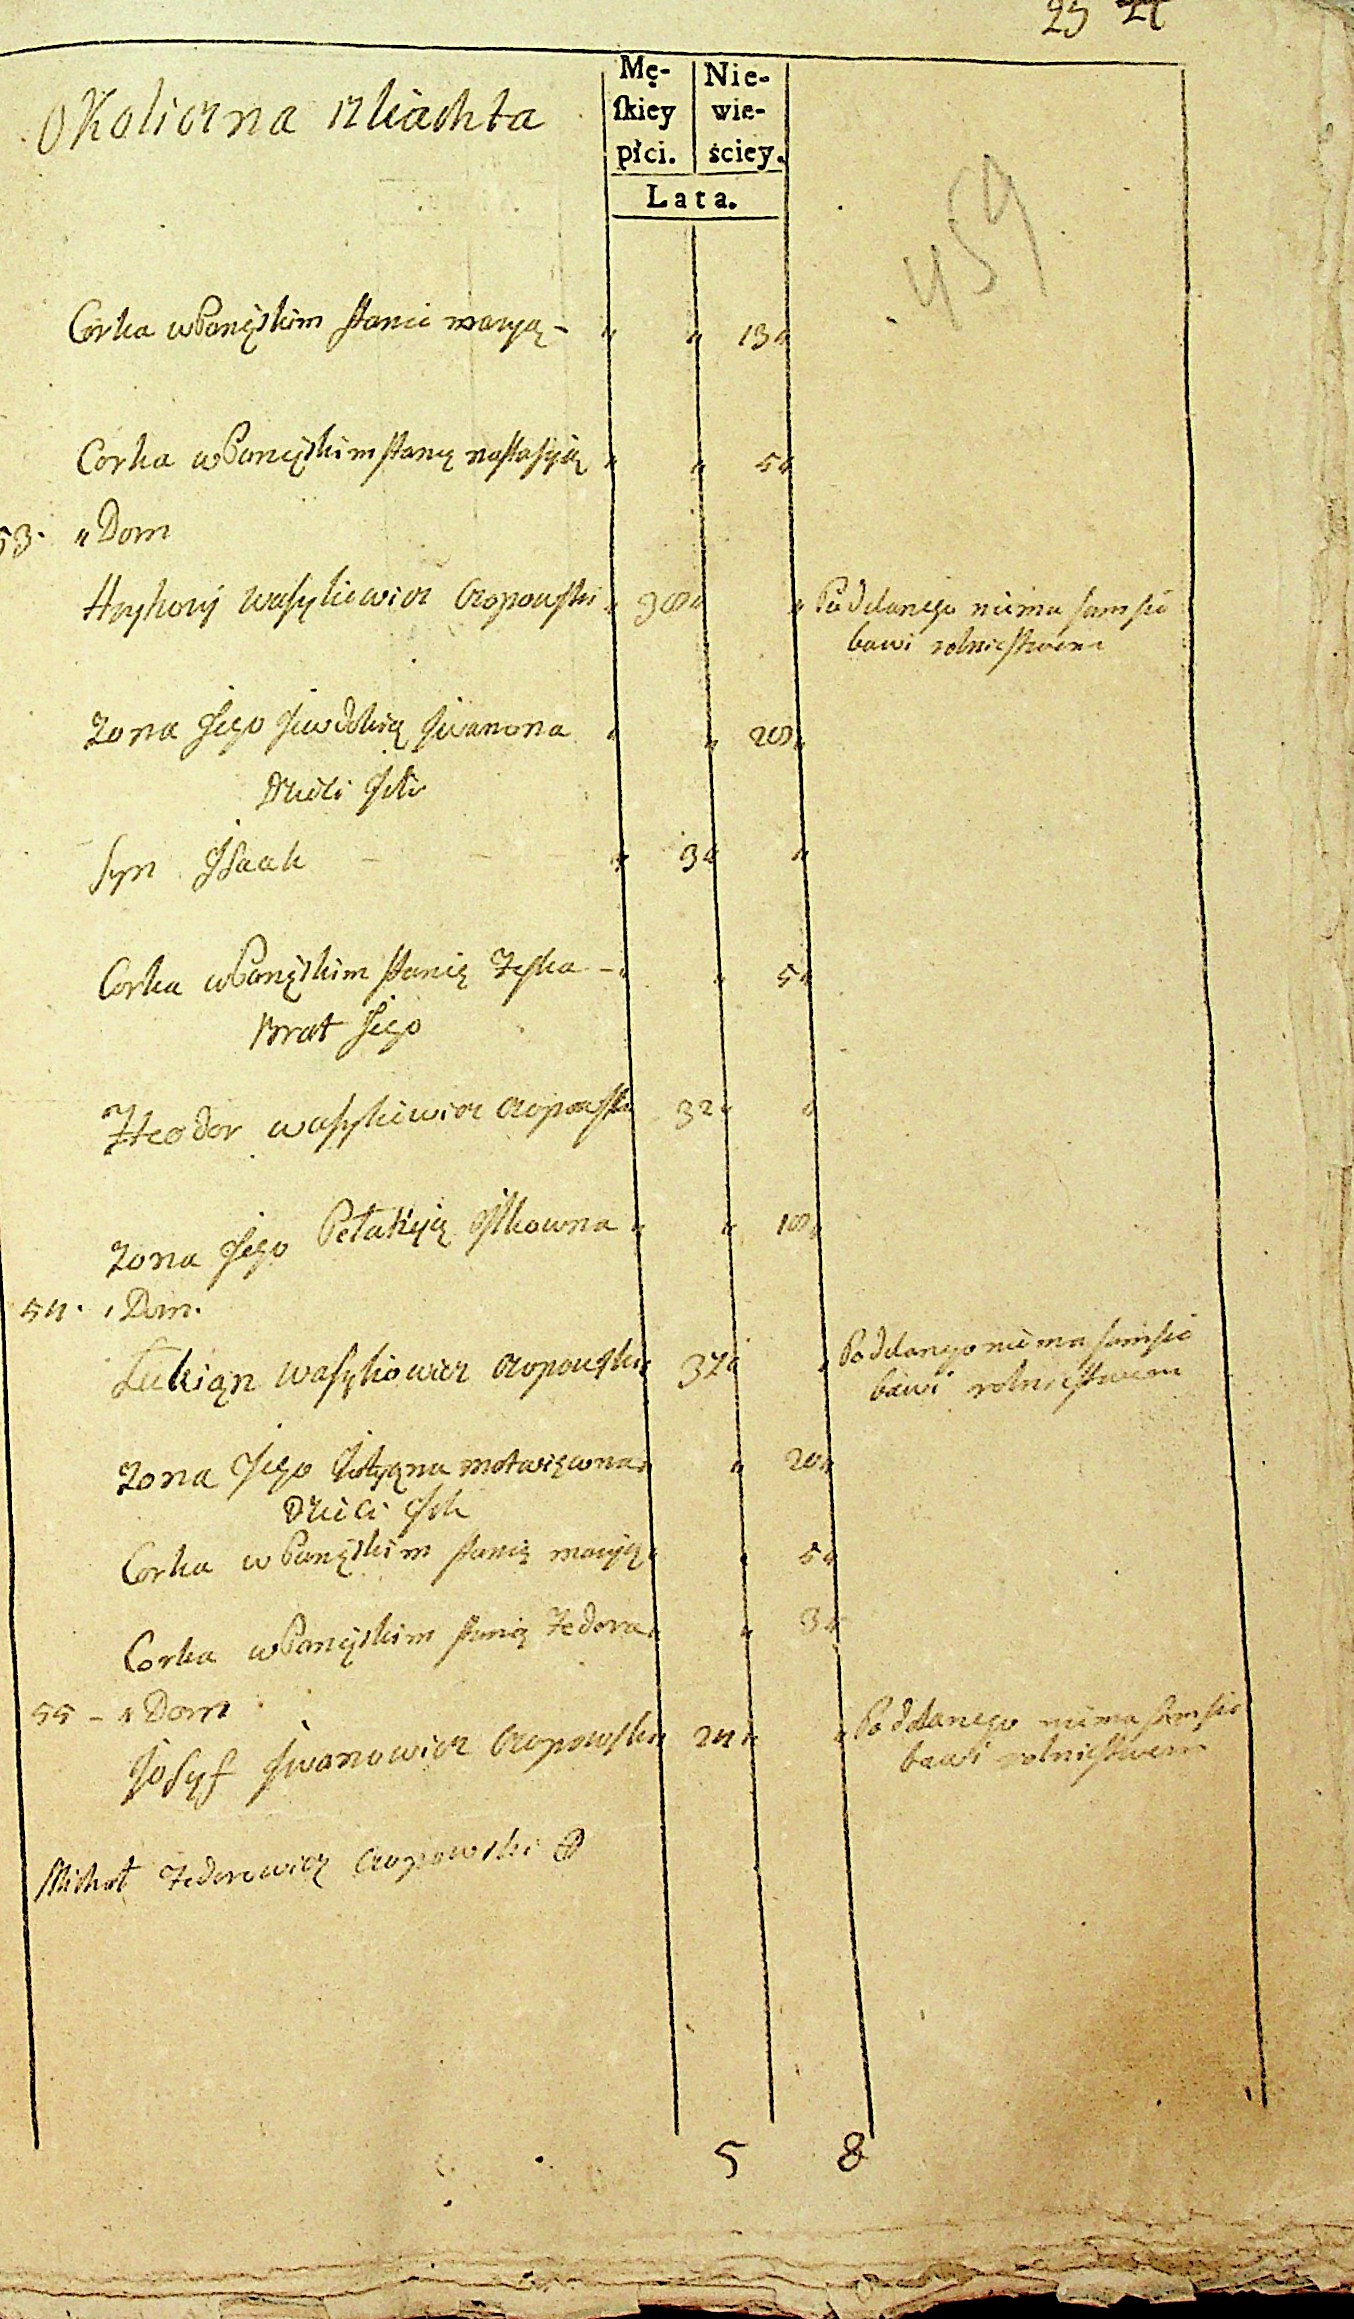 25
Okoliczna szliachta
Mę-
skiey
płci.
Nie-
wie-
ściey.
Lata.
459
Corka w Panęskim stanie maryją - " " 13 "
Corka w Panęskim stanę nastasyią " " 5 "
53. " Dom
Hryhory Wasyliewicz Czopowski " 38 " " Poddanego nima sam sie
bawi rolnictwem
Zona Jego Jewdokią Jwanowna " " 28 "
Dzieci Jch
Syn Jsaak " 3 " "
Corka w Panęskim stanię Teska - " " 5 "
Brat Jego
Theodor Wasyliewicz Czopowski 32 " "
Zona Jego Pełahyią Jłkowna " " 18 "
54. " Dom.
Łukiąn Wasyliowicz Czopowski " 37 " " Poddanego nima sam sie
bawi rolnictwem
Zona Jego motwięwna " " 20 "
Dzieci Jch
Corka w Panęskim stanię maryią " " 5 "
Corka w Panęskim stanię Fedora " " 3 "
55 - " Dom
Josyf Jwanowicz Czopowski " 24 " " Poddanego nima sam sie
bawi rolnictwem
Michał Fedorowicz Czopowski
5 8